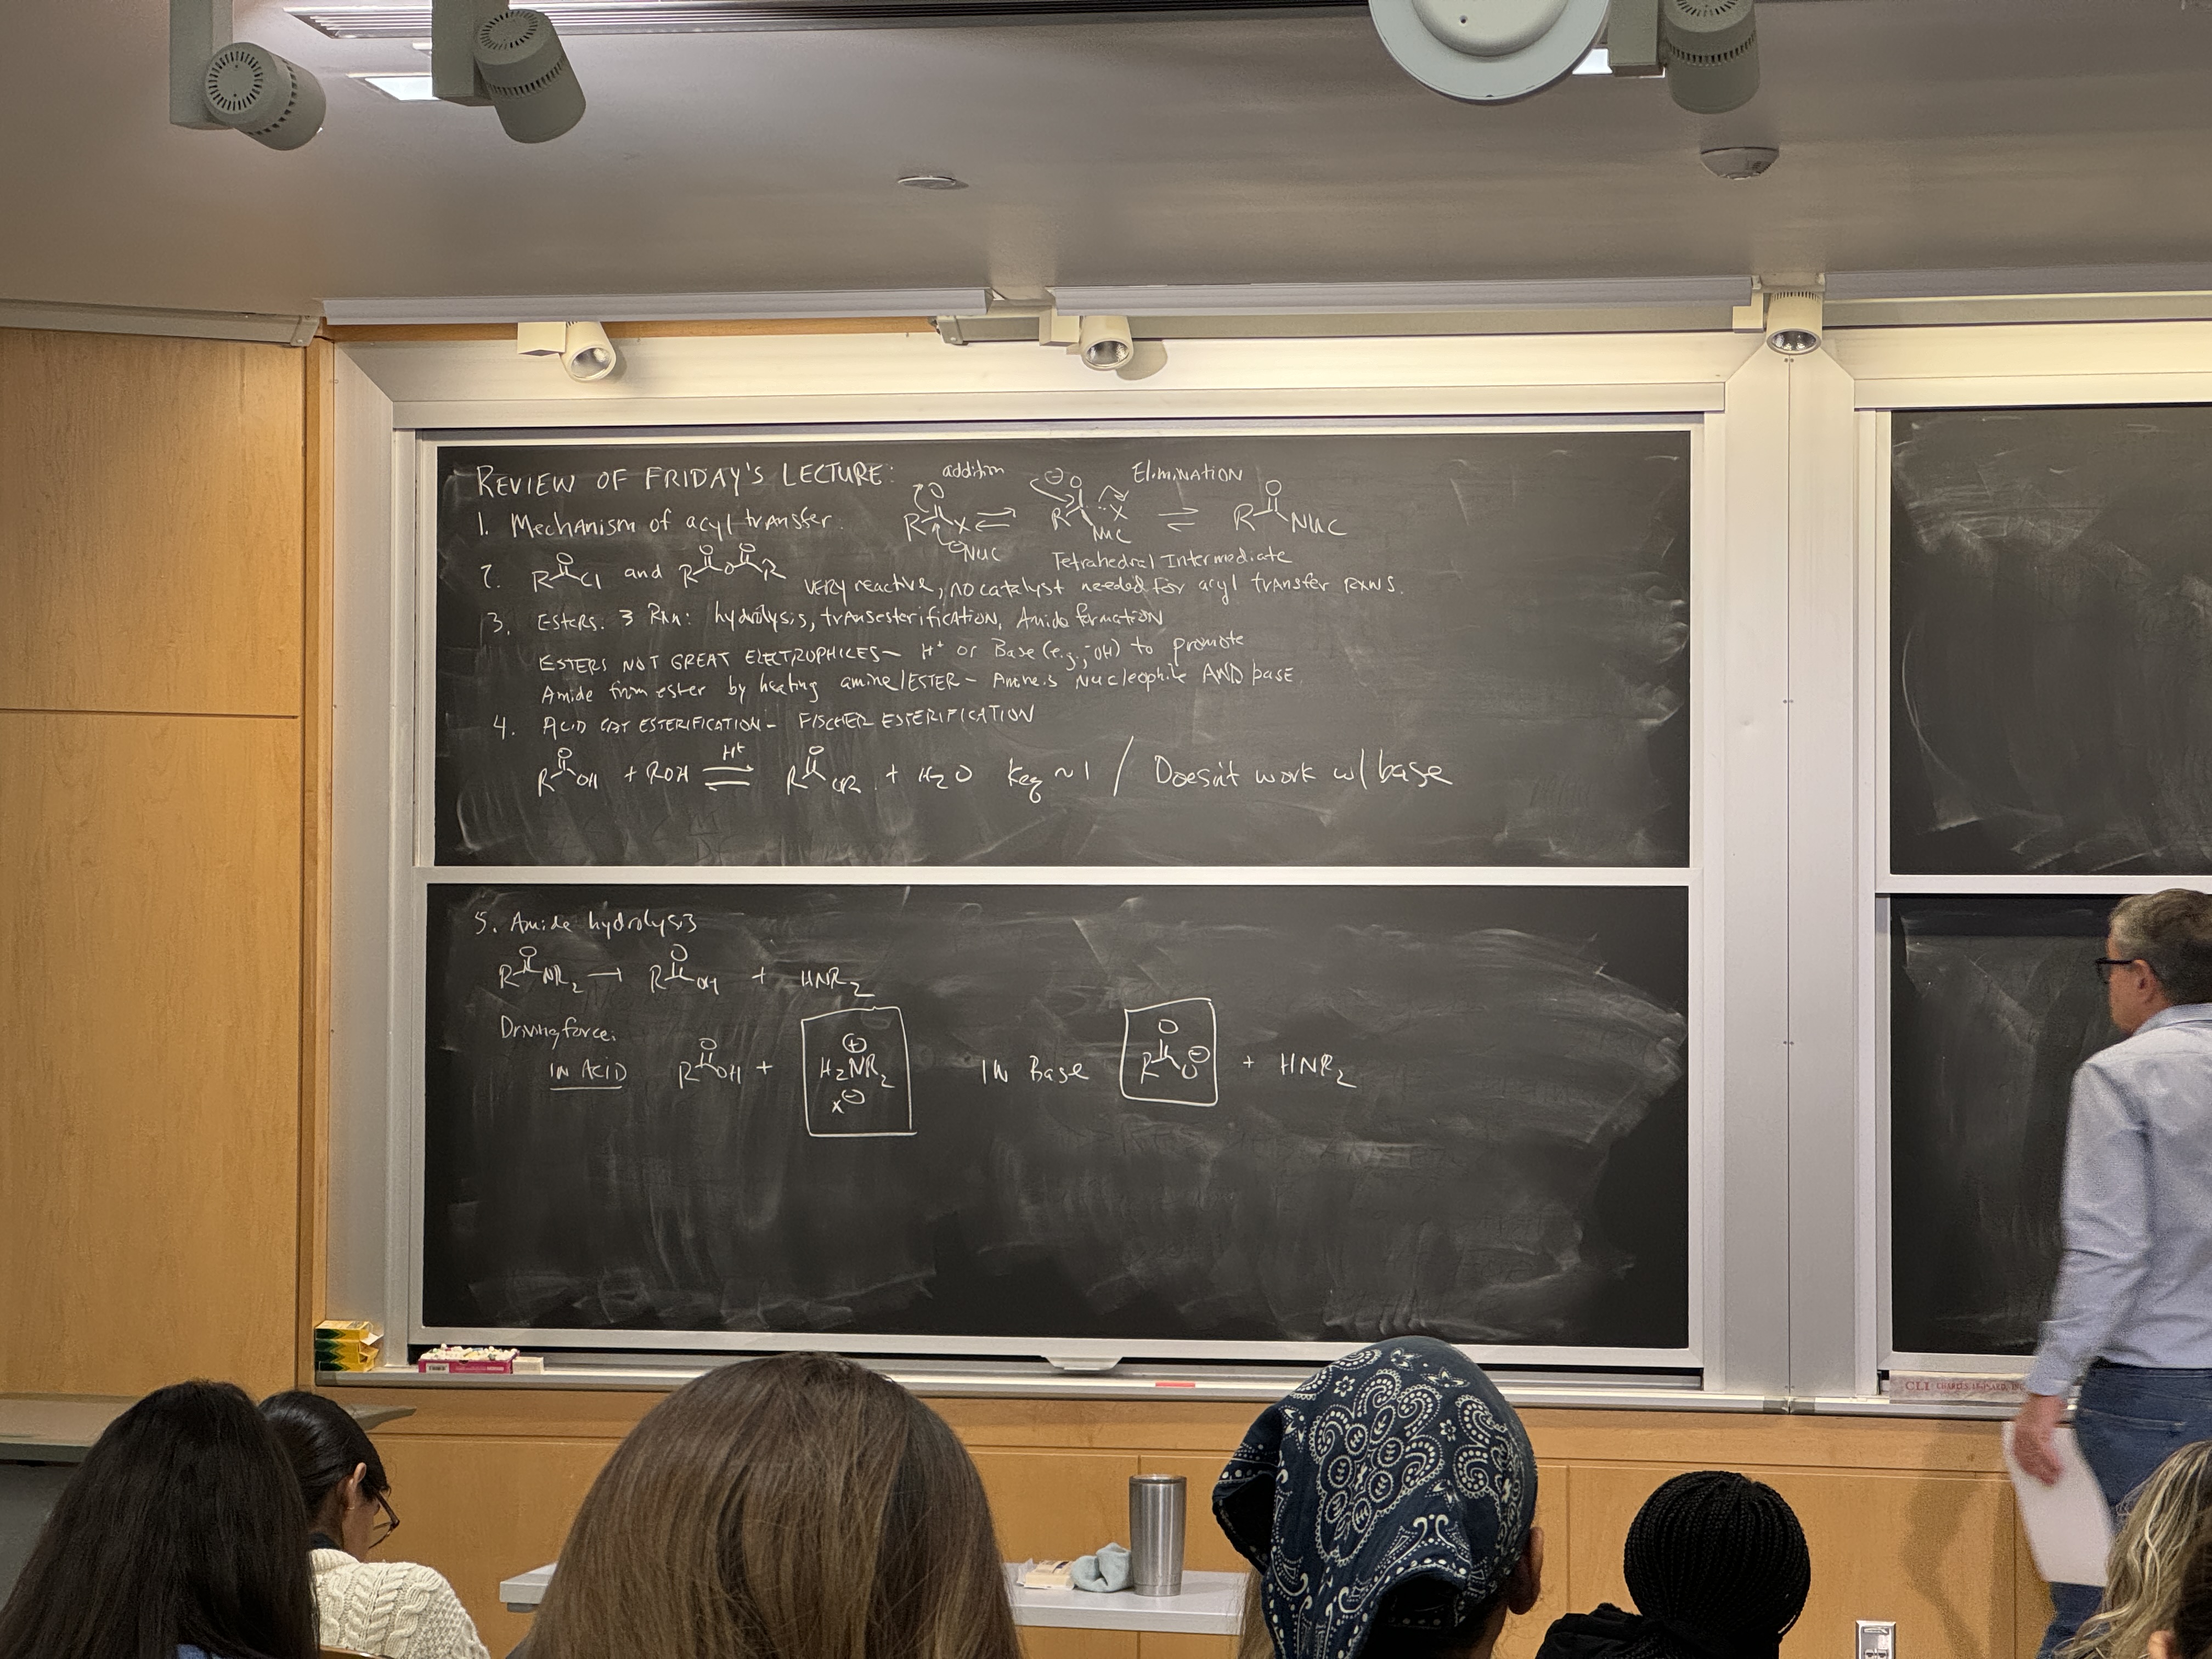 REVIEW OF FRIDAY'S LECTURE: addition Elimination
1. Mechanism of acyl transfer. R O X ⊖Nuc ⇌ ⊖O R X Nuc ⇌ R O Nuc
Tetrahedral Intermediate
2. R O Cl and R O O O R very reactive, no catalyst needed for acyl transfer RXNS.
3. Esters. 3 Rxn: hydrolysis, transesterification, Amide formation
ESTERS NOT GREAT ELECTROPHILES- H+ or Base (e.g., -OH) to promote
Amide from ester by heating amine/ESTER - Amine is Nucleophile AND base.
4. ACID CAT ESTERIFICATION- FISCHER ESTERIFICATION
R O OH + ROH ⇌ H+ R O OR + H2O Keq ~ 1 / Doesn't work w/ base
5. Amide hydrolysis
R O NR2 → R O OH + HNR2
Driving force:
IN ACID R O OH + ⊕ H2NR2 X⊖ IN Base R O O⊖ + HNR2
CLI